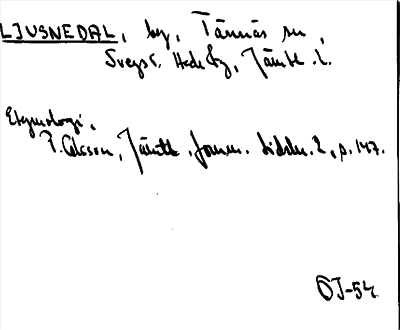 LJUSNEDAL, by, Tännäs sn,
Svegs t. Hede fg, Jämtl. l.
Etymologi,
P. Olsson, Jämtl. fornm. tidskr. 2, s. 147.
OJ-54